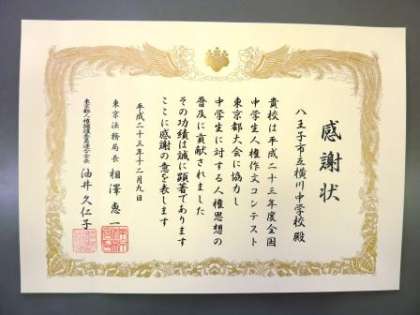 感謝状
八王子市立横川中学校 殿
貴校は平成二十三年度全国
中学生人権作文コンテスト
東京都大会に協力し
中学生に対する人権思想の
普及に貢献されました
その功績は誠に顕著であります
ここに感謝の意を表します
平成二十三年十二月九日
東京法務局長 相澤恵一
東京都人権擁護委員連合会会長 油井久仁子